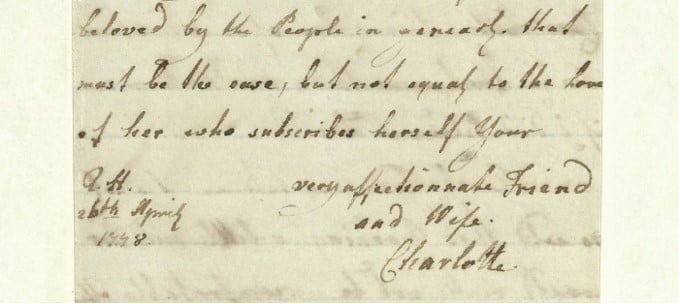 beloved by the People in generaly. that
must be the case, but not equal to the love
of her who subscribes herself Your
Q.H. very affectionnate Friend
26th April and Wife.
1778. Charlotte.